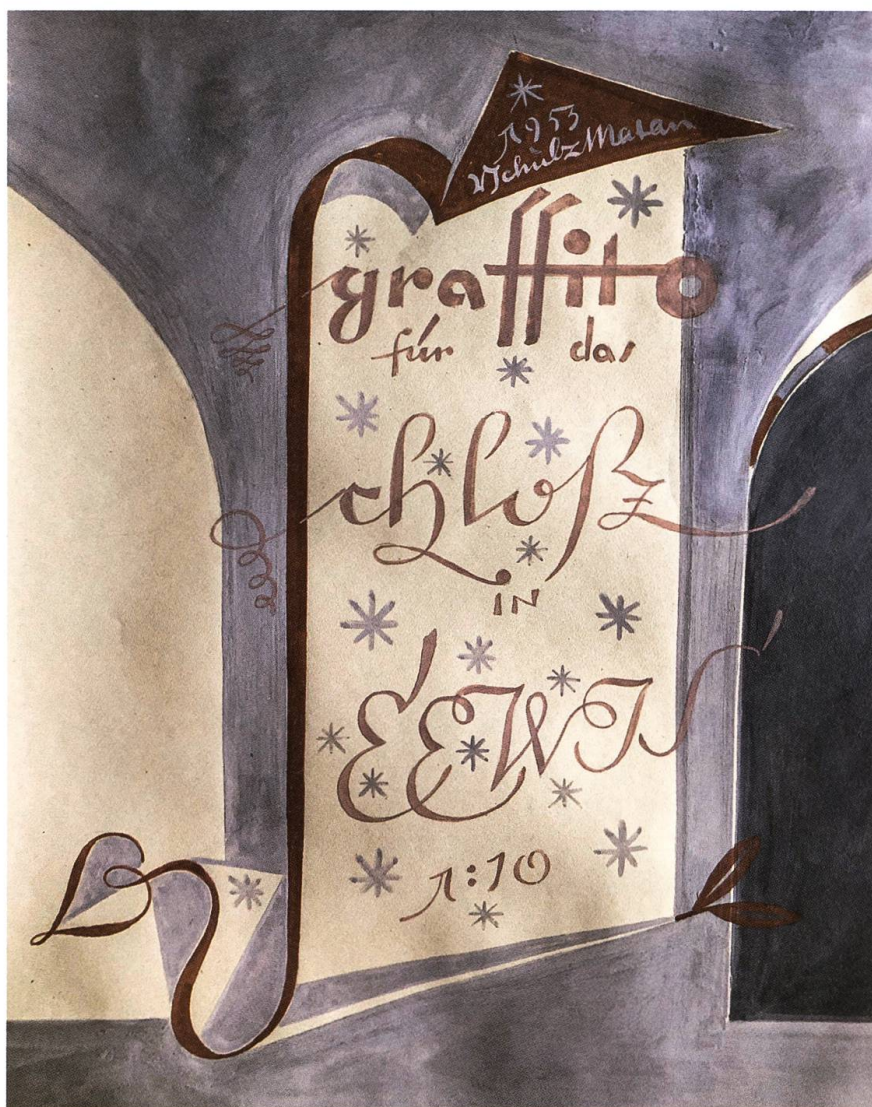 1953
WSchulzMatan
graffito
für das
Schloß
IN
SEEWIS
1:10